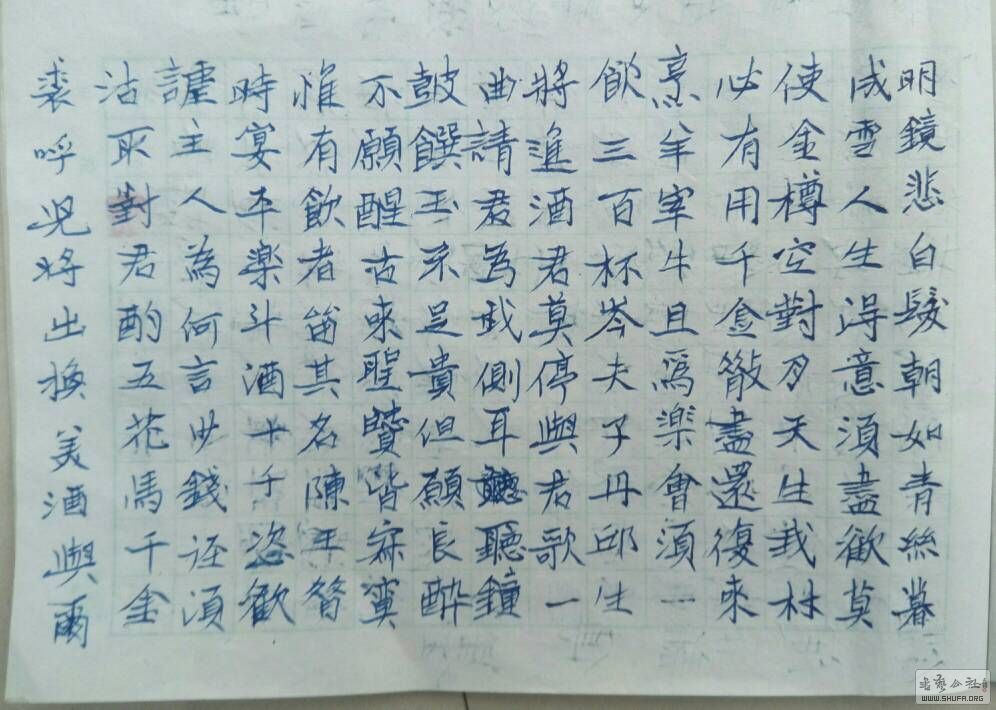 明鏡悲白髮朝如青絲暮
成雪人生得意須盡歡莫
使金樽空對月天生我材
必有用千金散盡還復來
烹羊宰牛且爲樂會須一
飲三百杯岑夫子丹邱生
將進酒君莫停與君歌一
曲請君為我側耳聽聽鐘
鼓饌玉不足貴但願長醉
不願醒古來聖賢皆寂寞
惟有飲者留其名陳王昔
時宴平樂斗酒十千恣歡
謔主人為何言少錢逕須
沽取對君酌五花馬千金
裘呼兒將出換美酒與爾
書藝公社
WWW.SHUFA.ORG